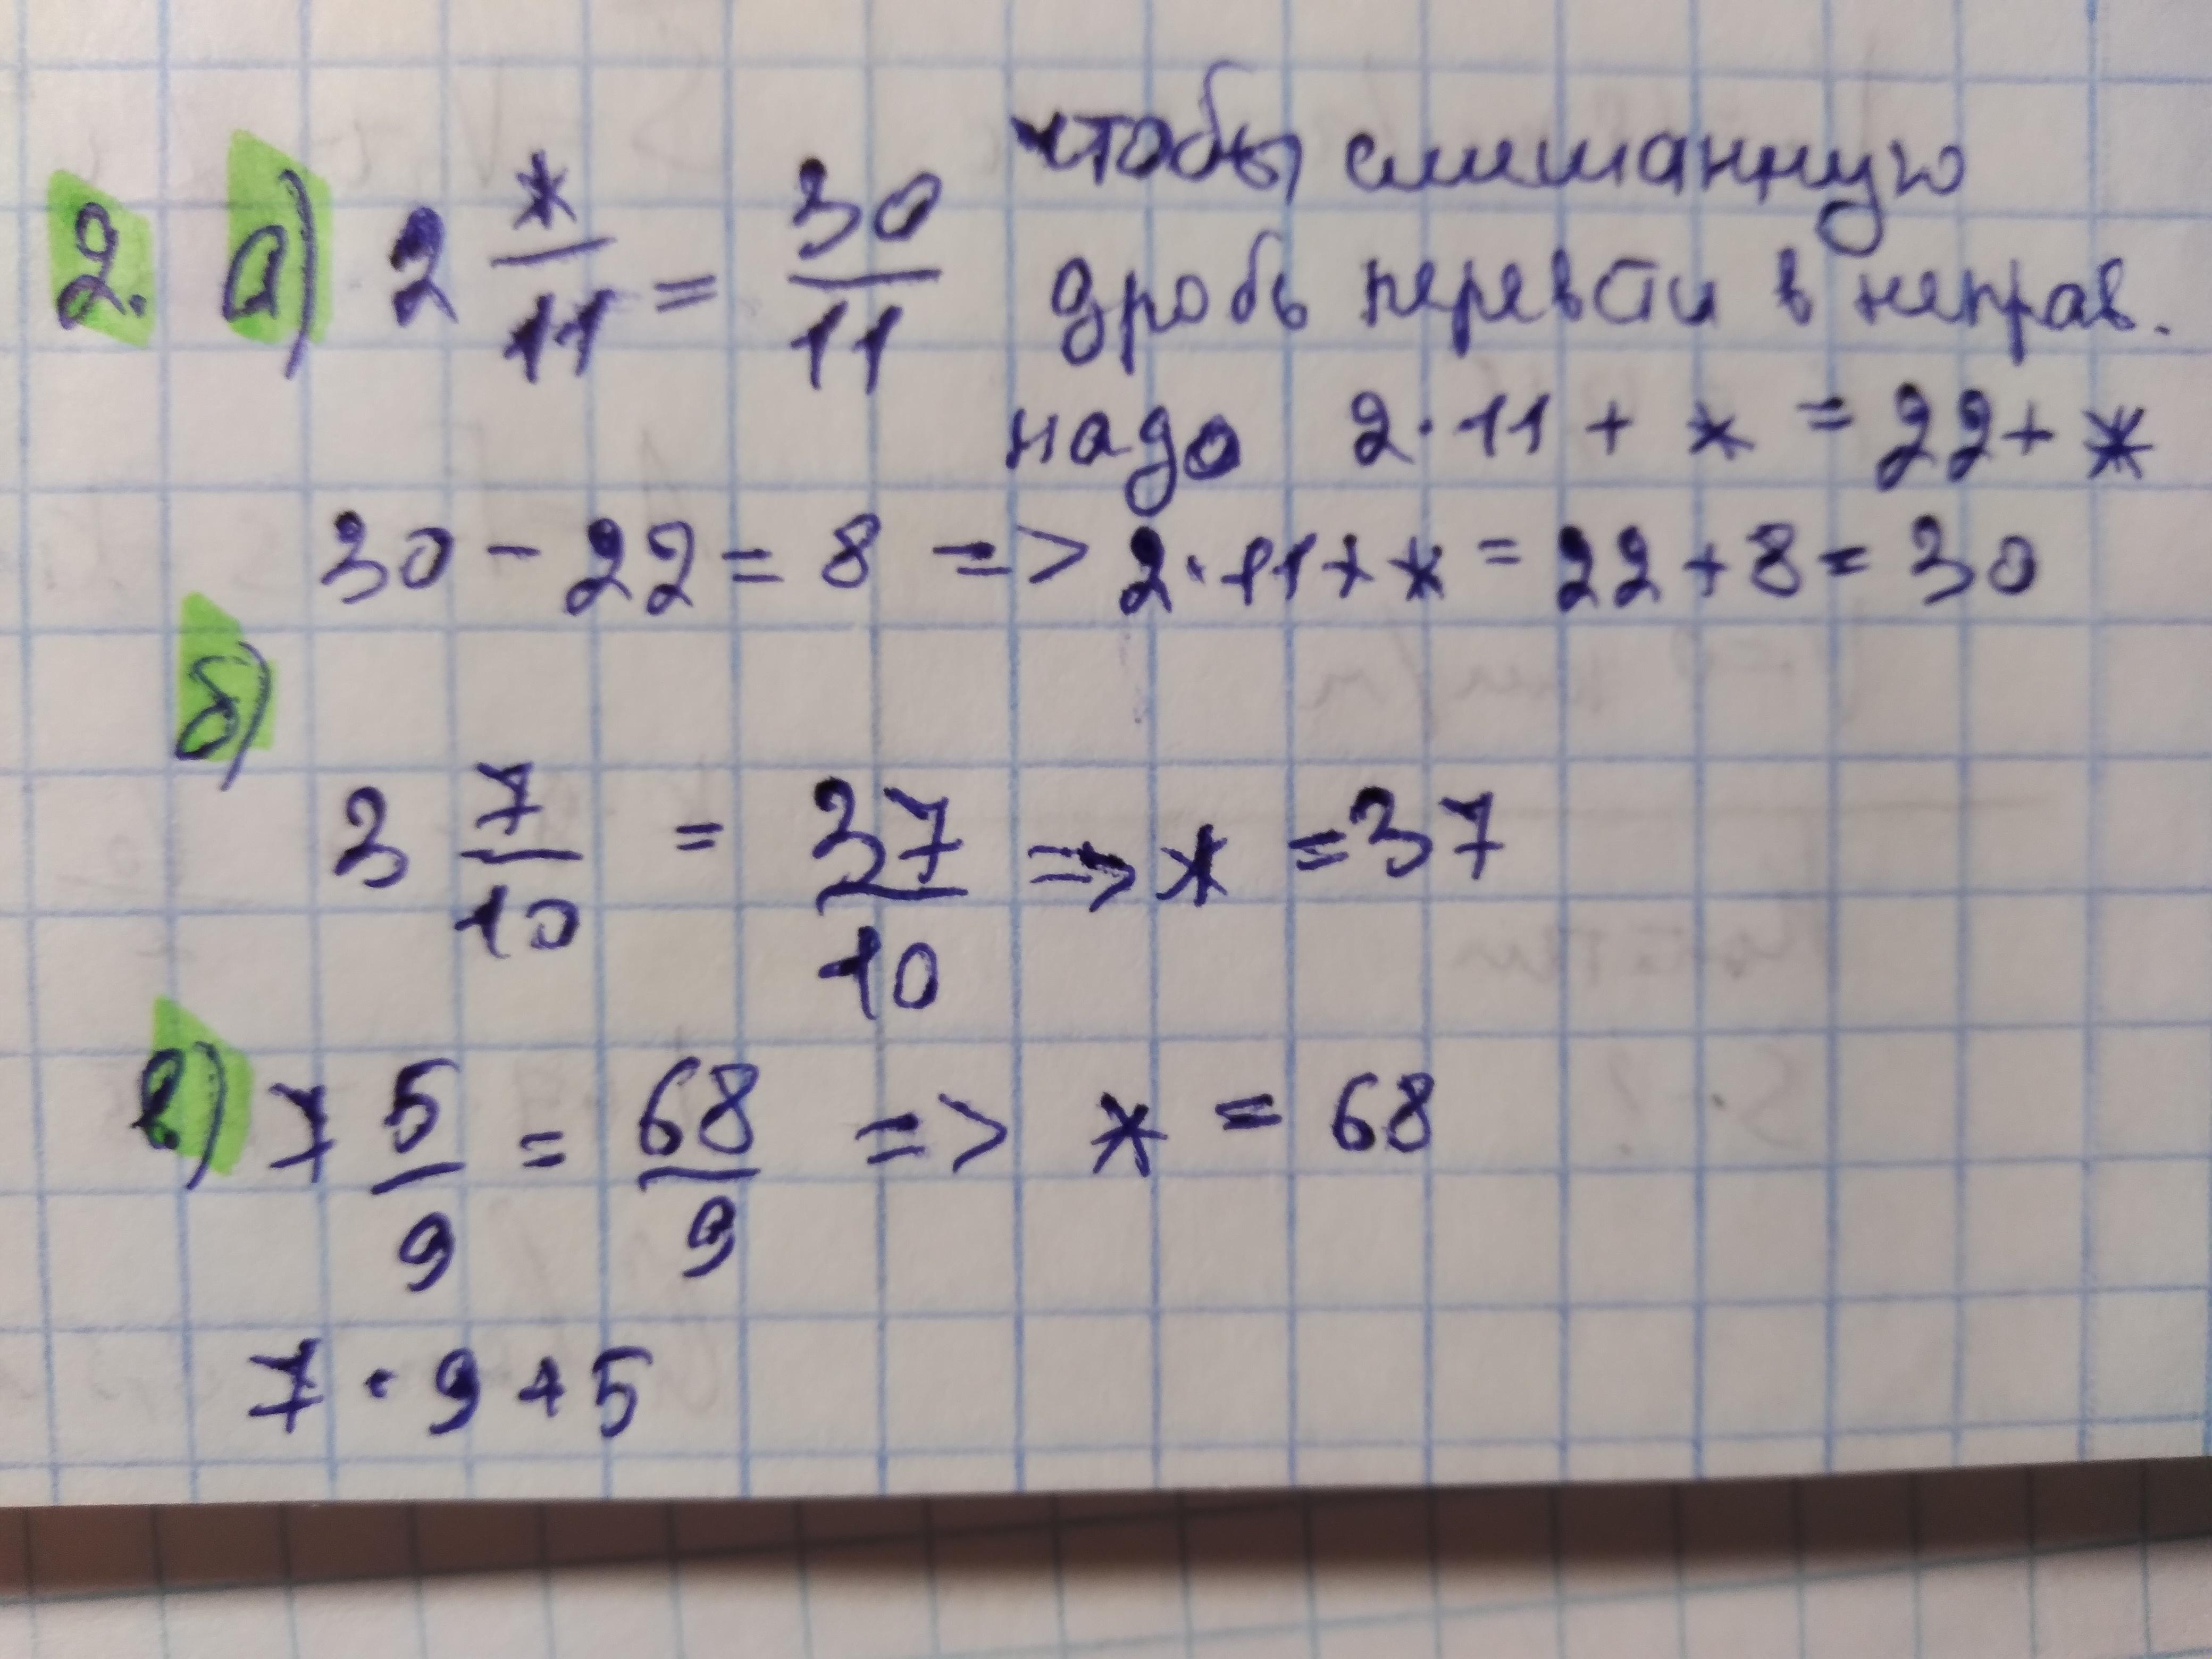 2. а) 2 */11 = 30/11 чтобы смешанную
дробь перевсти в неправ.
надо 2·11 + * = 22 + *
30 - 22 = 8 => 2·11 + * = 22 + 8 = 30
б)
3 7/10 = 37/10 => * = 37
в) 7 5/9 = 68/9 => * = 68
7 · 9 + 5